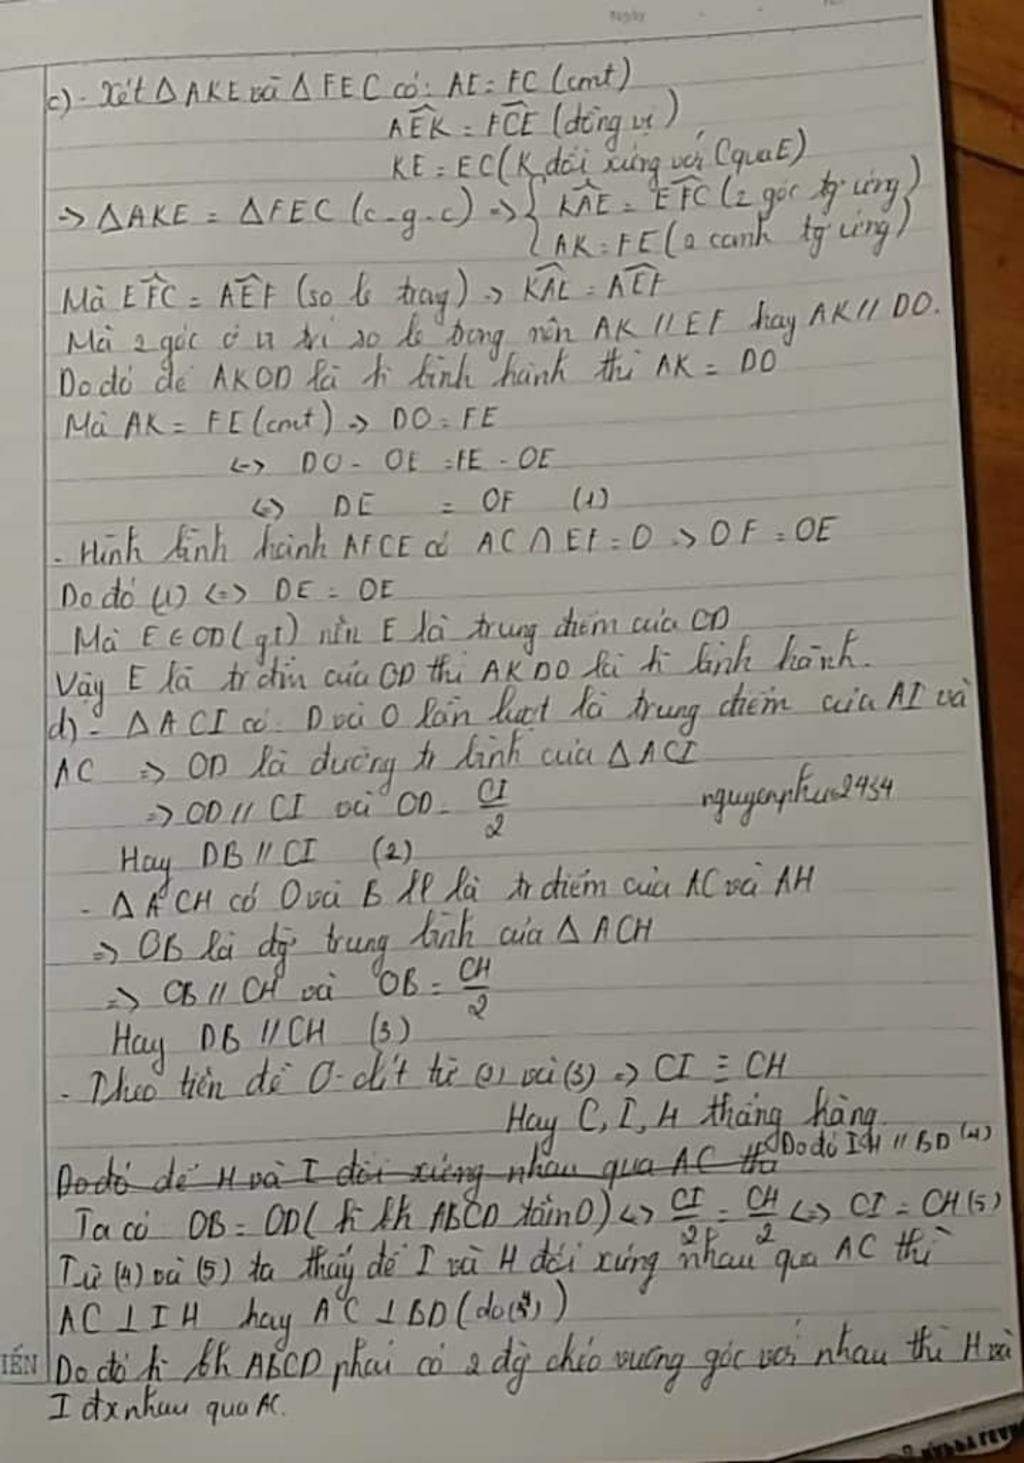 Ngày
c) - Xét Δ AKE và Δ FEC có: AE = FC (cmt)
AÊK = FĈE (đồng vị)
KE = EC (K đối xứng với C qua E)
=> ΔAKE = ΔFEC (c-g-c) => { KÂE = EF̂C (2 góc tg ứng)
AK = FE (2 cạnh tg ứng) }
Mà EF̂C = AÊF (so le trong) => KÂE = AÊF
Mà 2 góc ở vị trí so le trong nên AK // EF hay AK // DO.
Do đó để AKOD là h bình hành thì AK = DO
Mà AK = FE (cmt) => DO = FE
<=> DO - OE = FE - OE
<=> DE = OF (1)
- Hình bình hành AFCE có AC ∩ EF = O => OF = OE
Do đó (1) <=> DE = OE
Mà E ∈ OD (gt) nên E là trung điểm của OD
Vậy E là tr điểm của OD thì AKDO là h bình hành.
d) - Δ ACI có: D và O lần lượt là trung điểm của AI và
AC => OD là đường tr bình của Δ ACI
=> OD // CI và OD = CI/2
nguyenphuc2434
Hay DB // CI (2)
- Δ ACH có O và B ll là tr điểm của AC và AH
=> OB là đg trung bình của Δ ACH
=> OB // CH và OB = CH/2
Hay DB // CH (3)
- Theo tiên đề Ơ-clít từ (2) và (3) => CI ≡ CH
Hay C, I, H thẳng hàng
Do đó để H và I đối xứng nhau qua AC thì Do đó IH // BD (4)
Ta có OB = OD (h bh ABCD tâm O) <=> CI/2 = CH/2 <=> CI = CH (5)
Từ (4) và (5) ta thấy để I và H đối xứng nhau qua AC thì
AC ⊥ IH hay AC ⊥ BD (do (4))
IẾN
Do đó h bh ABCD phải có 2 đg chéo vuông góc với nhau thì H và
I đx nhau qua AC.